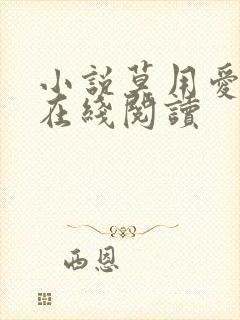 小説草用愛
在綫閱讀
西恩